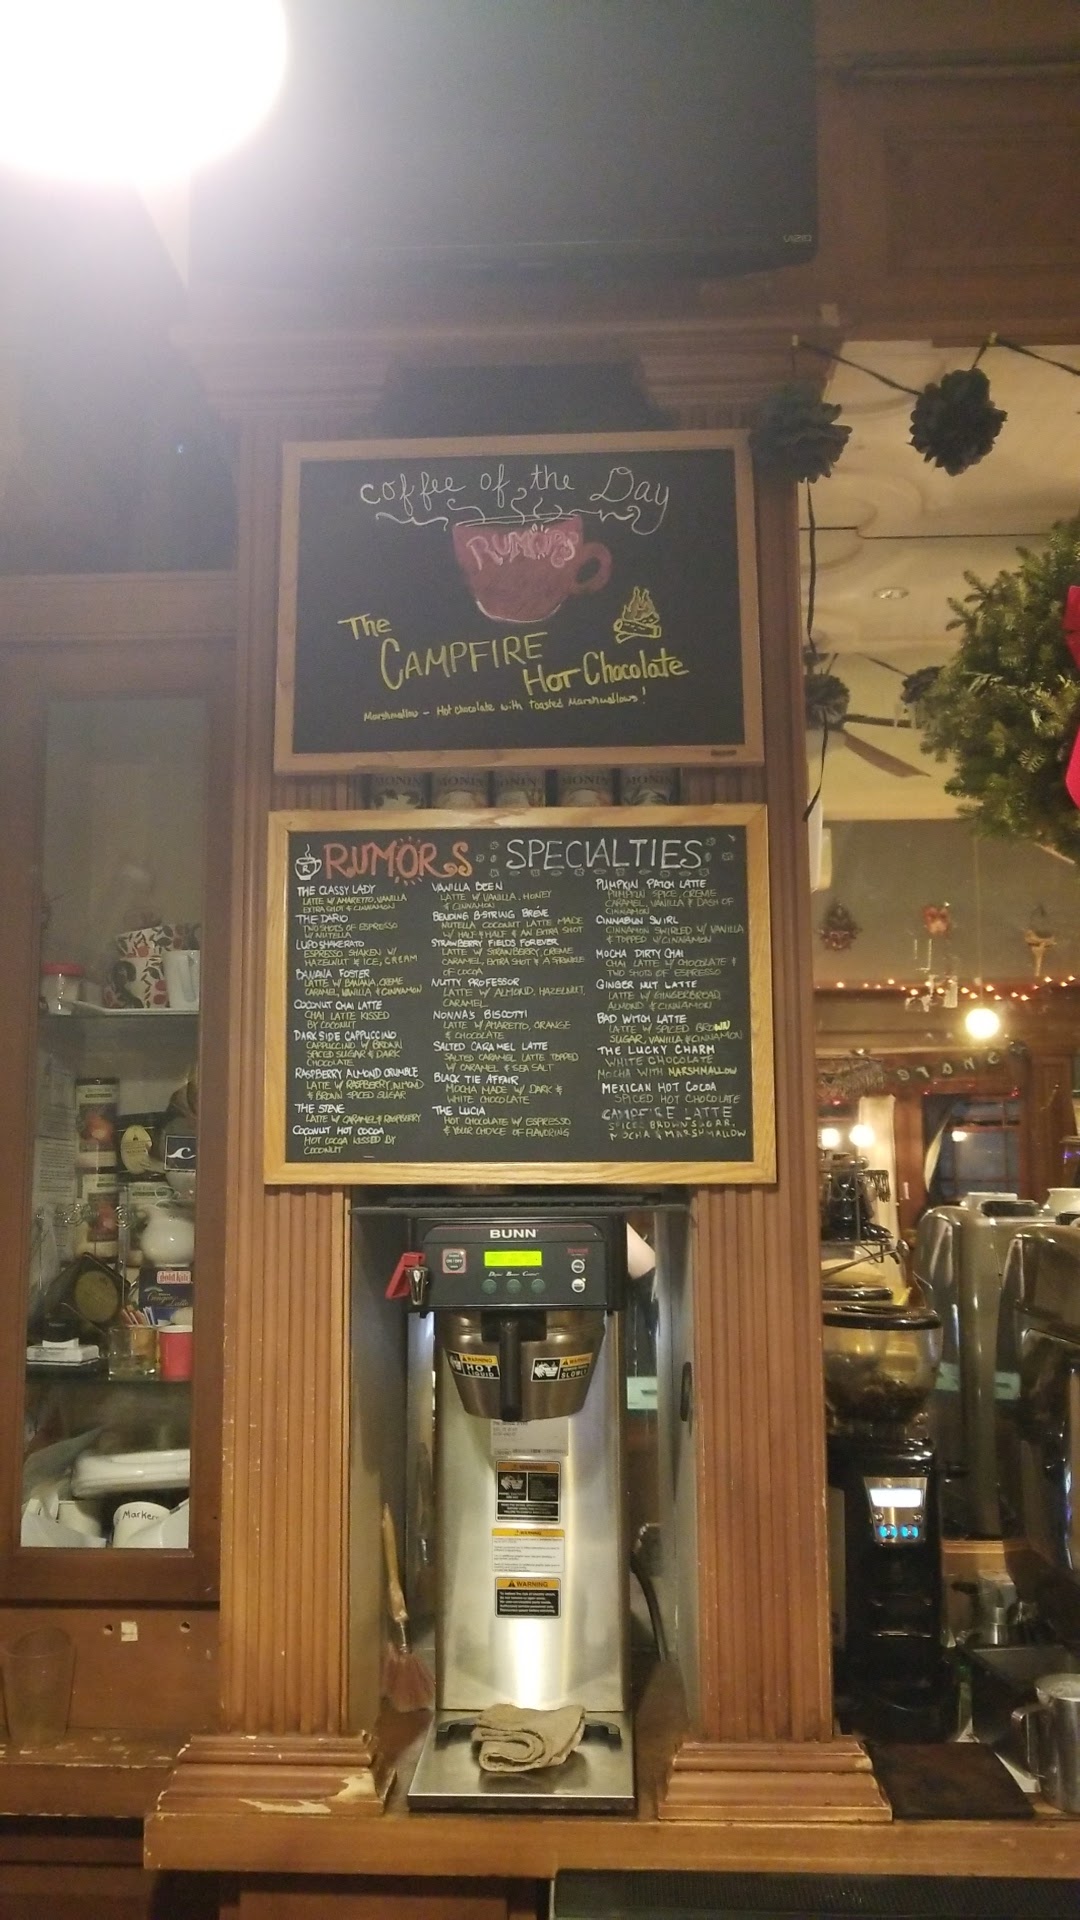 VIZIO
coffee of the Day
RUMORS
The
CAMPFIRE
Hot Chocolate
Marshmallow - Hot chocolate with toasted Marshmallows!
MONIN MONIN MONIN MONIN MONIN
RUMORS SPECIALTIES
THE CLASSY LADY
LATTE W/ AMARETTO, VANILLA
EXTRA SHOT & CINNAMON
THE DARIO
TWO SHOTS OF ESPRESSO
W/ NUTELLA
LUPO SHAKERATO
ESPRESSO SHAKEN W/
HAZELNUT & ICE, CREAM
BANANA FOSTER
LATTE W/ BANANA, CREME
CARAMEL, VANILLA & CINNAMON
COCONUT CHAI LATTE
CHAI LATTE KISSED
BY COCONUT
DARK SIDE CAPPUCCINO
CAPPUCCINO W/ BROWN
SPICED SUGAR & DARK
CHOCOLATE
RASPBERRY ALMOND CRUMBLE
LATTE W/ RASPBERRY, ALMOND
& BROWN SPICED SUGAR
THE STEVE
LATTE W/ CARAMEL & RASPBERRY
COCONUT HOT COCOA
HOT COCOA KISSED BY
COCONUT
VANILLA BEEN
LATTE W/ VANILLA, HONEY
& CINNAMON
BENDING B-STRING BREVE
NUTELLA COCONUT LATTE MADE
W/ HALF & HALF & AN EXTRA SHOT
STRAWBERRY FIELDS FOREVER
LATTE W/ STRAWBERRY, CREME
CARAMEL, EXTRA SHOT & A SPRINKLE
OF COCOA
NUTTY PROFESSOR
LATTE W/ ALMOND, HAZELNUT,
CARAMEL
NONNA'S BISCOTTI
LATTE W/ AMARETTO, ORANGE
& CHOCOLATE
SALTED CARAMEL LATTE
SALTED CARAMEL LATTE TOPPED
W/ CARAMEL & SEA SALT
BLACK TIE AFFAIR
MOCHA MADE W/ DARK &
WHITE CHOCOLATE
THE LUCIA
HOT CHOCOLATE W/ ESPRESSO
& YOUR CHOICE OF FLAVORING
PUMPKIN PATCH LATTE
PUMPKIN SPICE, CREME
CARAMEL, VANILLA & DASH OF
CINNAMON
CINNABUN SWIRL
CINNAMON SWIRLED W/ VANILLA
& TOPPED W/ CINNAMON
MOCHA DIRTY CHAI
CHAI LATTE W/ CHOCOLATE &
TWO SHOTS OF ESPRESSO
GINGER NUT LATTE
LATTE W/ GINGERBREAD,
ALMOND & CINNAMON
BAD WITCH LATTE
LATTE W/ SPICED BROWN
SUGAR, VANILLA & CINNAMON
THE LUCKY CHARM
WHITE CHOCOLATE
MOCHA WITH MARSHMALLOW
MEXICAN HOT COCOA
SPICED HOT CHOCOLATE
CAMPFIRE LATTE
SPICED BROWN SUGAR,
MOCHA & MARSHMALLOW
BUNN
WARNING
HOT
LIQUID
WARNING
SLOWLY
WARNING
WARNING
WARNING
gold kili
Markers